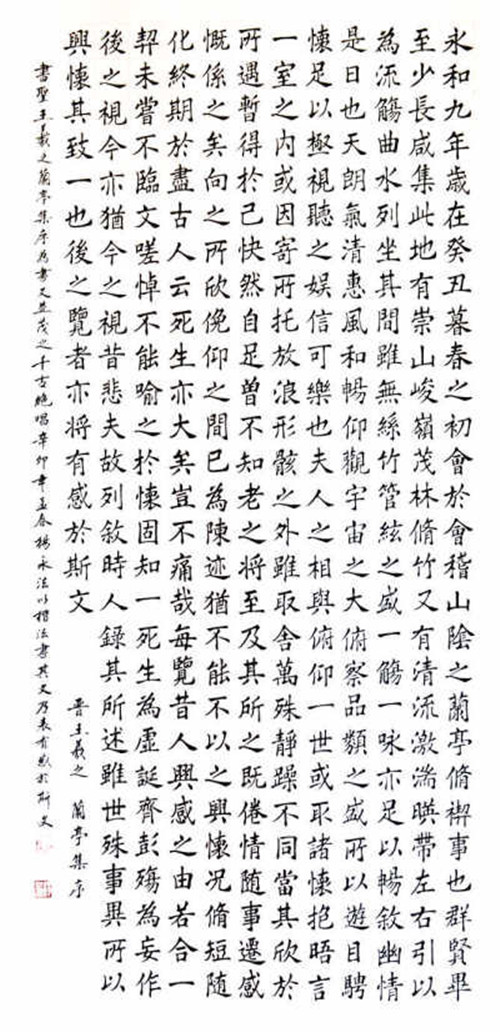 永和九年歲在癸丑暮春之初會於會稽山陰之蘭亭脩禊事也群賢畢
至少長咸集此地有崇山峻嶺茂林脩竹又有清流激湍暎帶左右引以
為流觴曲水列坐其間雖無絲竹管絃之盛一觴一咏亦足以暢敘幽情
是日也天朗氣清惠風和暢仰觀宇宙之大俯察品類之盛所以遊目騁
懷足以極視聽之娛信可樂也夫人之相與俯仰一世或取諸懷抱晤言
一室之內或因寄所托放浪形骸之外雖取舍萬殊靜躁不同當其欣於
所遇暫得於己快然自足曾不知老之將至及其所之既倦情隨事遷感
慨係之矣向之所欣俛仰之間已為陳迹猶不能不以之興懷況脩短隨
化終期於盡古人云死生亦大矣豈不痛哉每覽昔人興感之由若合一
契未嘗不臨文嗟悼不能喻之於懷固知一死生為虛誕齊彭殤為妄作
後之視今亦猶今之視昔悲夫故列敘時人錄其所述雖世殊事異所以
興懷其致一也後之覽者亦將有感於斯文
晉王羲之 蘭亭集序
書聖王羲之蘭亭集序為書文並茂之千古絕唱辛卯年孟春楊永法以楷法書其文乃表有感於斯文